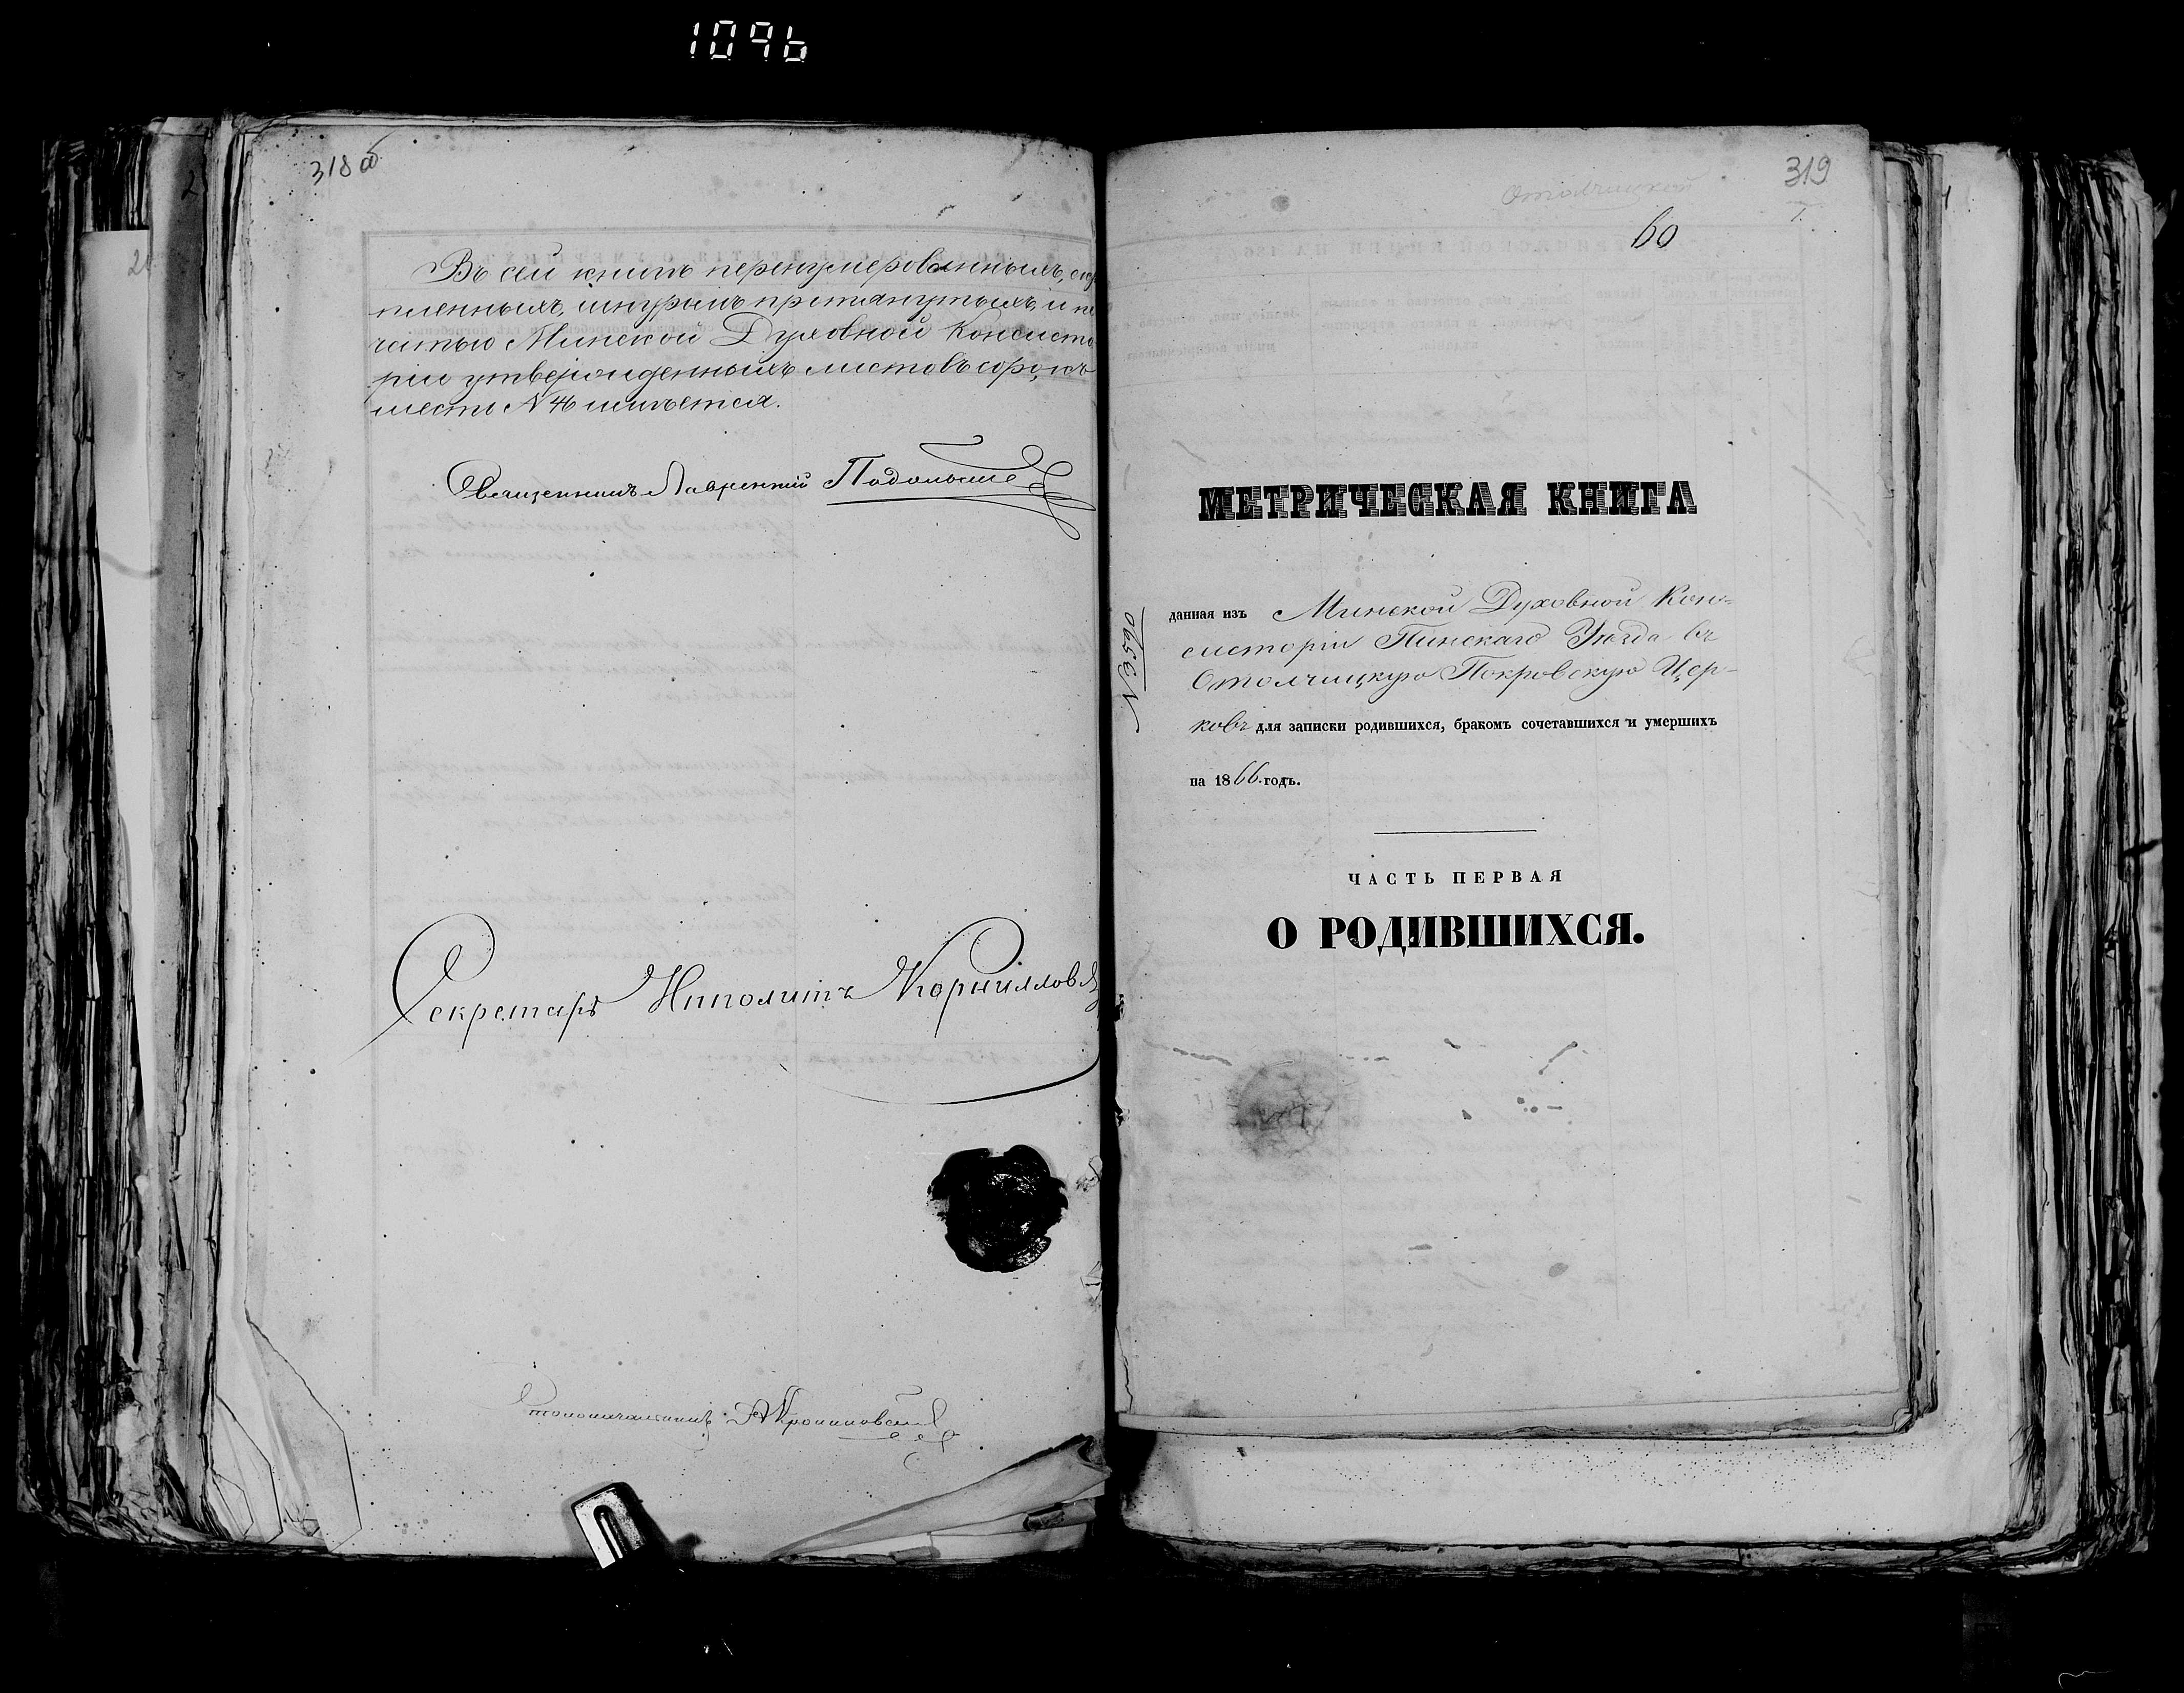 1096
318 об
Въ сей книгѣ перенумерованныхъ, скрѣ
пленныхъ, шнуромъ протянутыхъ, и пе
чатью Минской Духовной Консисто
ріи утвержденныхъ листовъ сорокъ
шесть N 46 имѣется.
Священникъ Лаврентій
Секретарь Ипполитъ
Столоначальникъ
319
1.
Отолчицкой
60
МЕТРИЧЕСКАЯ КНИГА
N 3590
данная изъ Минской Духовной Кон-
систоріи Пинскаго Уѣзда въ
Отолчицкую Покровскую Цер-
ковь для записки родившихся, бракомъ сочетавшихся и умершихъ
на 1866 годъ.
ЧАСТЬ ПЕРВАЯ
О РОДИВШИХСЯ.